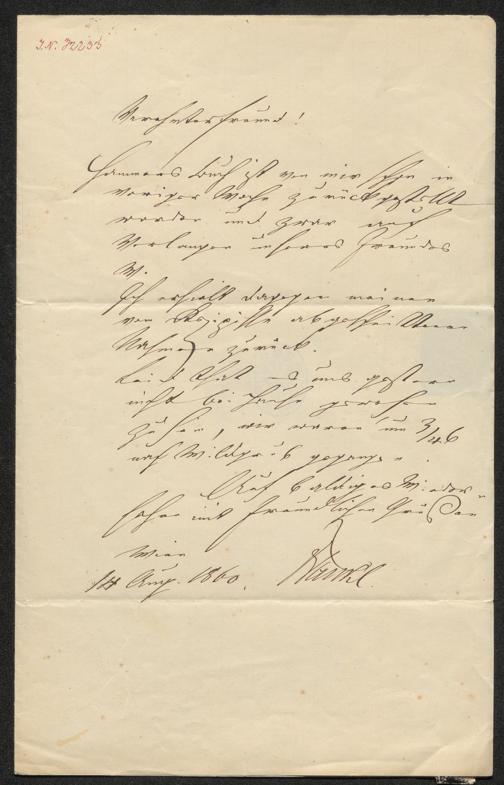 I.N. 32235
Verehrter Freund!
Hammers Buch ist von mir schon in
voriger Woche zurückgestellt
worden und zwar auf
Verlangen unseres Freundes
W.
Ich erhielt dagegen meinen
von abgestellten
zurück.
Leid that es uns gestern
nicht bei Hause gewesen
zu sein, wir waren um 3/4 6
nach gegangen.
Auf baldiges Wieder-
sehen mit freundlichen Grüßen
Wien
14 Aug. 1860.